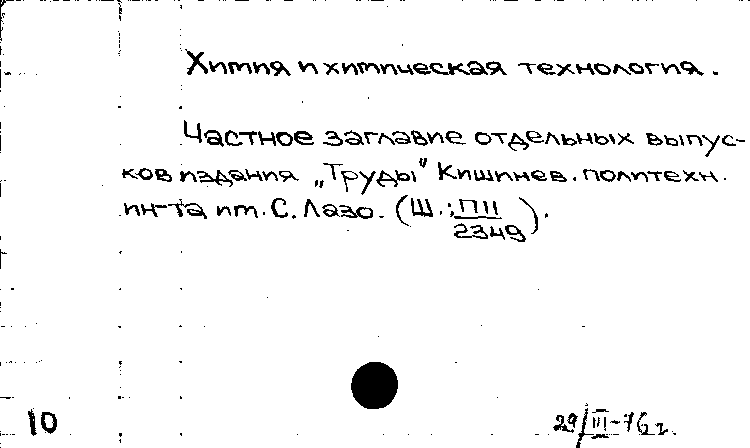 Химия и химическая технология.
Частное заглавие отдельных выпус-
ков издания „Труды" Кишинев. политехн.
ин-та им. С. Лазо. (Ш.; ПII
2349).
10
29/III-76 г.